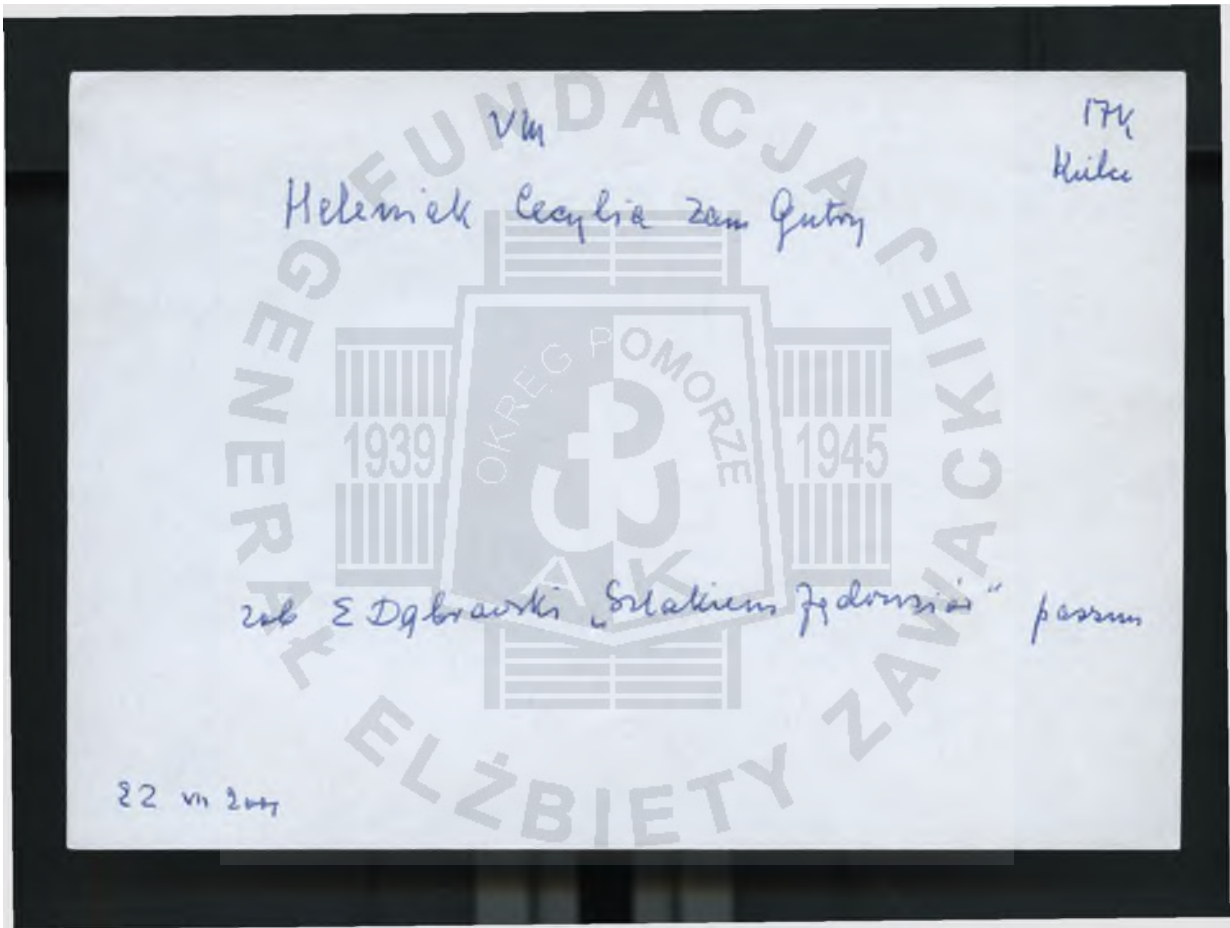 VM
17K
Kielce
Heleniak Cecylia zam Gutry
zob E Dąbrowski „Szlakiem Jędrusiów" passim
EZ VII
FUNDACJA
GENERAŁ ELŻBIETY ZAWACKIEJ
OKRĘG POMORZE
1939
1945
AK